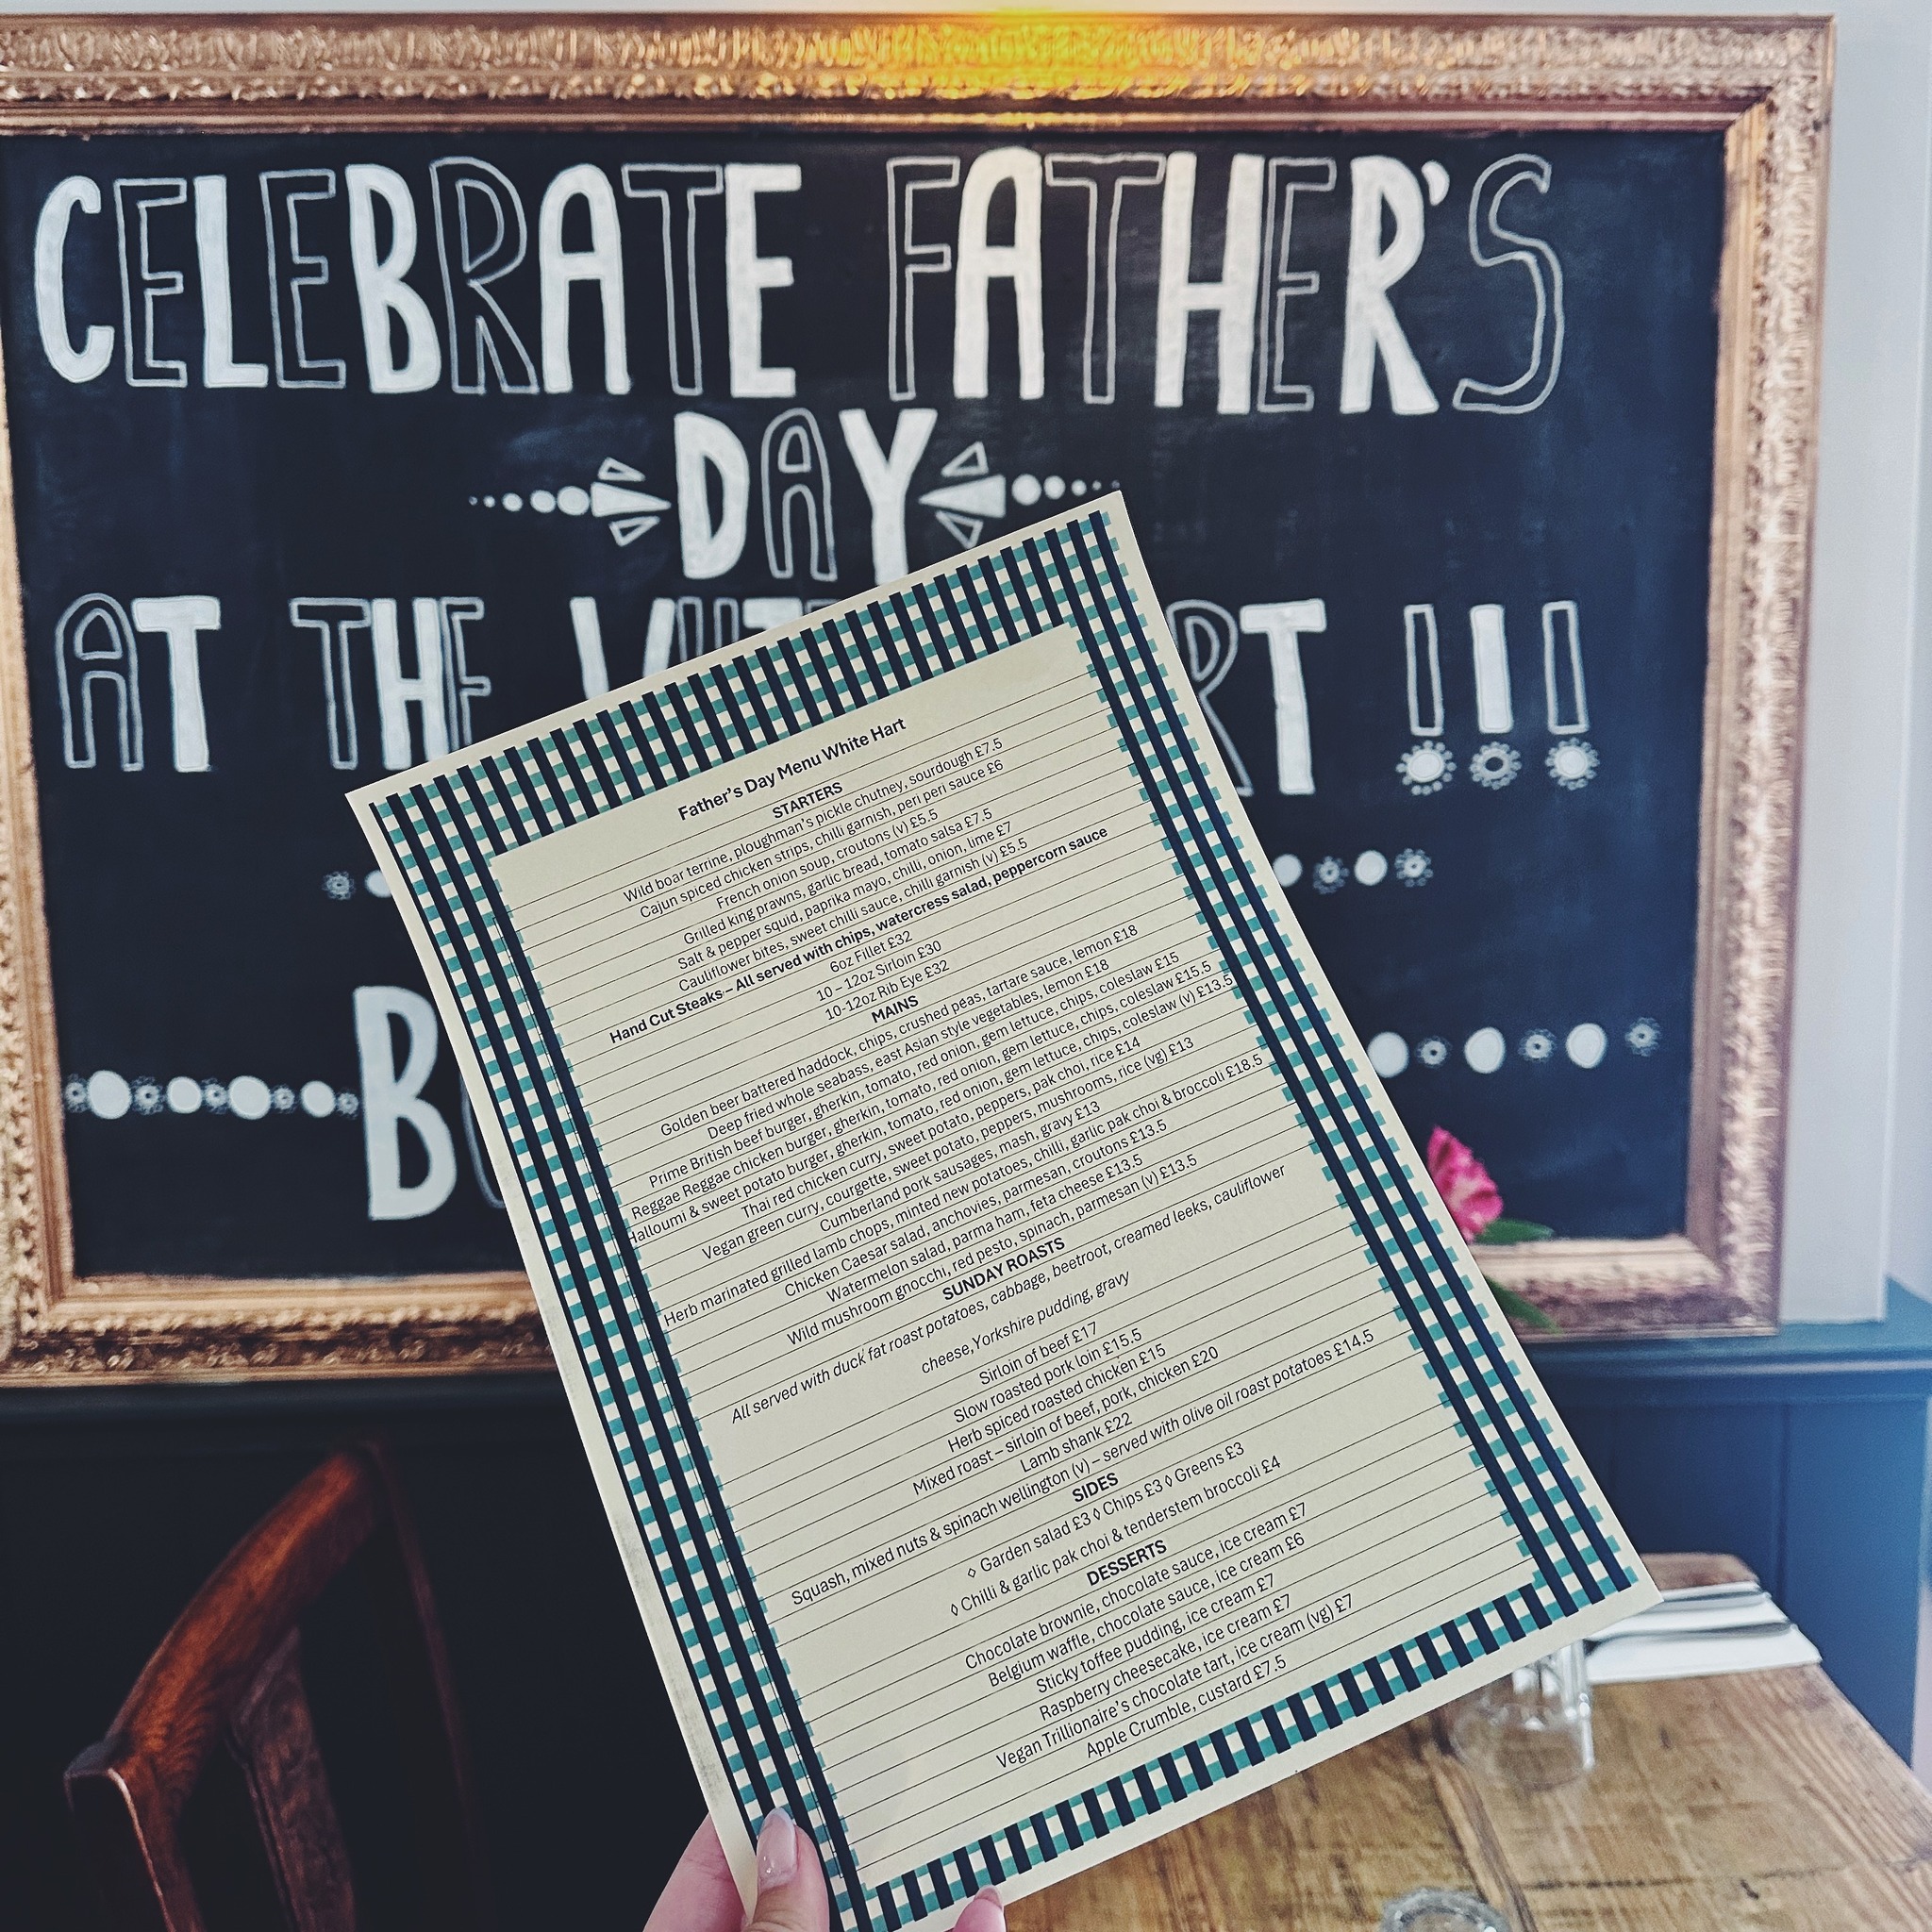 CELEBRATE FATHER'S
DAY
AT THE !!!
Father's Day Menu White Hart
STARTERS
Wild boar terrine, ploughman's pickle chutney, sourdough £7.5
Cajun spiced chicken strips, chilli garnish, peri peri sauce £6
French onion soup, croutons (v) £5.5
Grilled king prawns, garlic bread, tomato salsa £7.5
Salt & pepper squid, paprika mayo, chilli, onion, lime £7
Cauliflower bites, sweet chilli sauce, chilli garnish (v) £5.5
Hand Cut Steaks – All served with chips, watercress salad, peppercorn sauce
6oz Fillet £32
10 – 12oz Sirloin £30
10-12oz Rib Eye £32
MAINS
Golden beer battered haddock, chips, crushed peas, tartare sauce, lemon £18
Deep fried whole seabass, east Asian style vegetables, lemon £18
Prime British beef burger, gherkin, tomato, red onion, gem lettuce, chips, coleslaw £15
Reggae Reggae chicken burger, gherkin, tomato, red onion, gem lettuce, chips, coleslaw £15.5
Halloumi & sweet potato burger, gherkin, tomato, red onion, gem lettuce, chips, coleslaw (v) £13.5
Thai red chicken curry, sweet potato, peppers, pak choi, rice £14
Vegan green curry, courgette, sweet potato, peppers, mushrooms, rice (vg) £13
Cumberland pork sausages, mash, gravy £13
Herb marinated grilled lamb chops, minted new potatoes, chilli, garlic pak choi & broccoli £18.5
Chicken Caesar salad, anchovies, parmesan, croutons £13.5
Watermelon salad, parma ham, feta cheese £13.5
Wild mushroom gnocchi, red pesto, spinach, parmesan (v) £13.5
SUNDAY ROASTS
All served with duck fat roast potatoes, cabbage, beetroot, creamed leeks, cauliflower
cheese, Yorkshire pudding, gravy
Sirloin of beef £17
Slow roasted pork loin £15.5
Herb spiced roasted chicken £15
Mixed roast – sirloin of beef, pork, chicken £20
Lamb shank £22
Squash, mixed nuts & spinach wellington (v) – served with olive oil roast potatoes £14.5
SIDES
◊ Garden salad £3 ◊ Chips £3 ◊ Greens £3
◊ Chilli & garlic pak choi & tenderstem broccoli £4
DESSERTS
Chocolate brownie, chocolate sauce, ice cream £7
Belgium waffle, chocolate sauce, ice cream £6
Sticky toffee pudding, ice cream £7
Raspberry cheesecake, ice cream £7
Vegan Trillionaire's chocolate tart, ice cream (vg) £7
Apple Crumble, custard £7.5